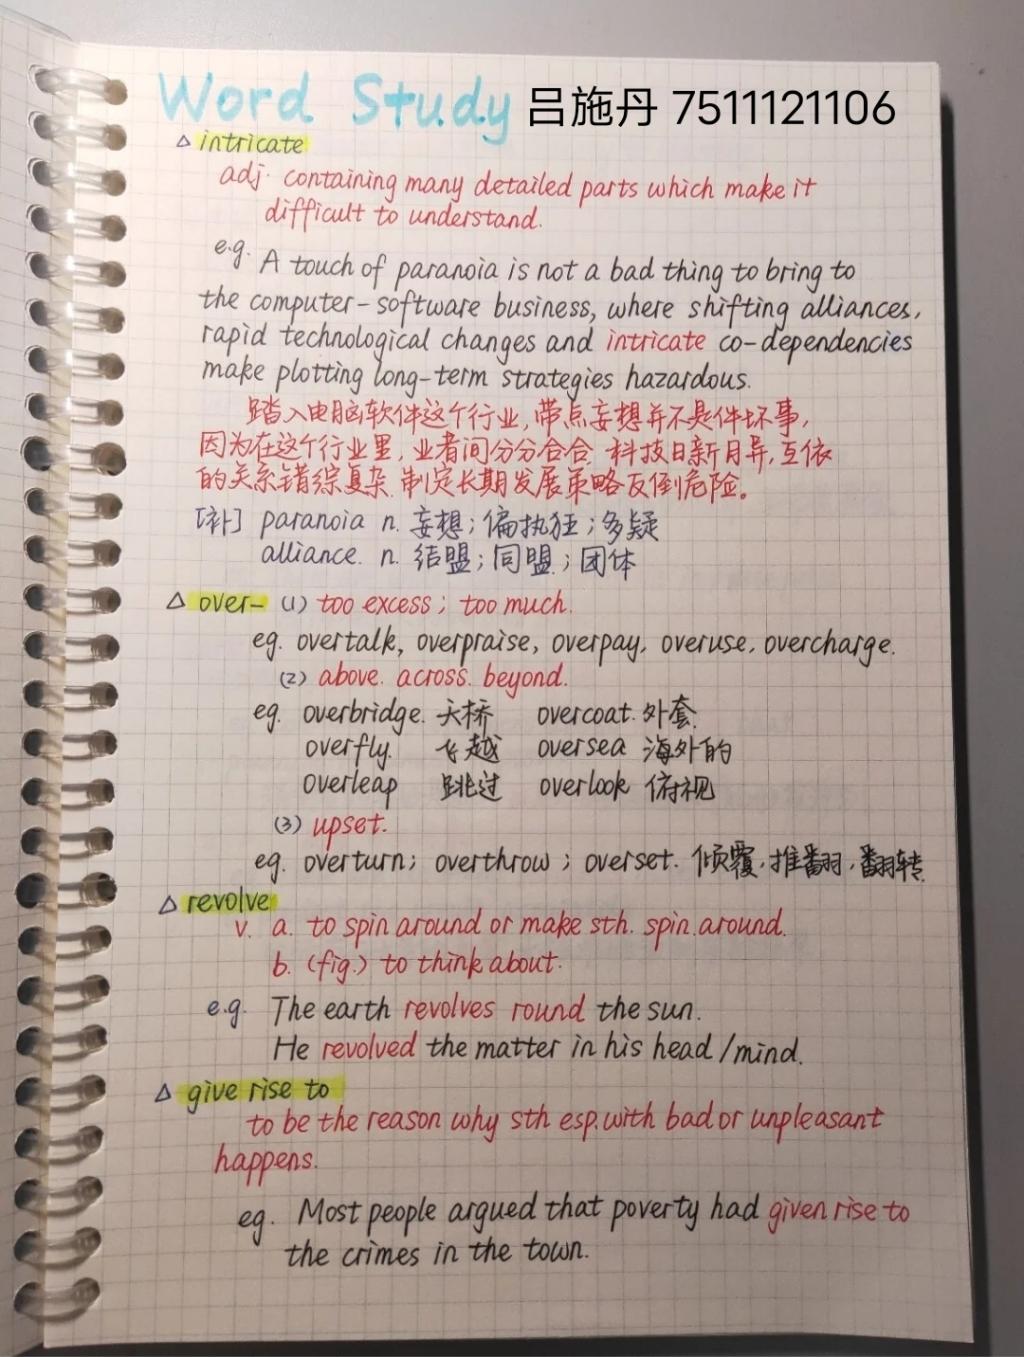 Word Study 吕施丹 7511121106
△ intricate
adj. containing many detailed parts which make it
difficult to understand.
e.g. A touch of paranoia is not a bad thing to bring to
the computer-software business, where shifting alliances,
rapid technological changes and intricate co-dependencies
make plotting long-term strategies hazardous.
踏入电脑软件这个行业,带点妄想并不是件坏事,
因为在这个行业里,业者间分分合合,科技日新月异,互依
的关系错综复杂,制定长期发展策略反倒危险。
[补] paranoia n. 妄想;偏执狂;多疑
alliance. n. 结盟;同盟;团体
△ over- (1) too excess; too much.
eg. overtalk, overpraise, overpay, overuse, overcharge.
(2) above. across. beyond.
eg. overbridge. 天桥 overcoat. 外套
overfly. 飞越 oversea 海外的
overleap 跳过 overlook 俯视
(3) upset.
eg. overturn; overthrow; overset. 倾覆,推翻,翻转
△ revolve
v. a. to spin around or make sth. spin around.
b. (fig.) to think about.
e.g. The earth revolves round the sun.
He revolved the matter in his head/mind.
△ give rise to
to be the reason why sth esp. with bad or unpleasant
happens.
eg. Most people argued that poverty had given rise to
the crimes in the town.